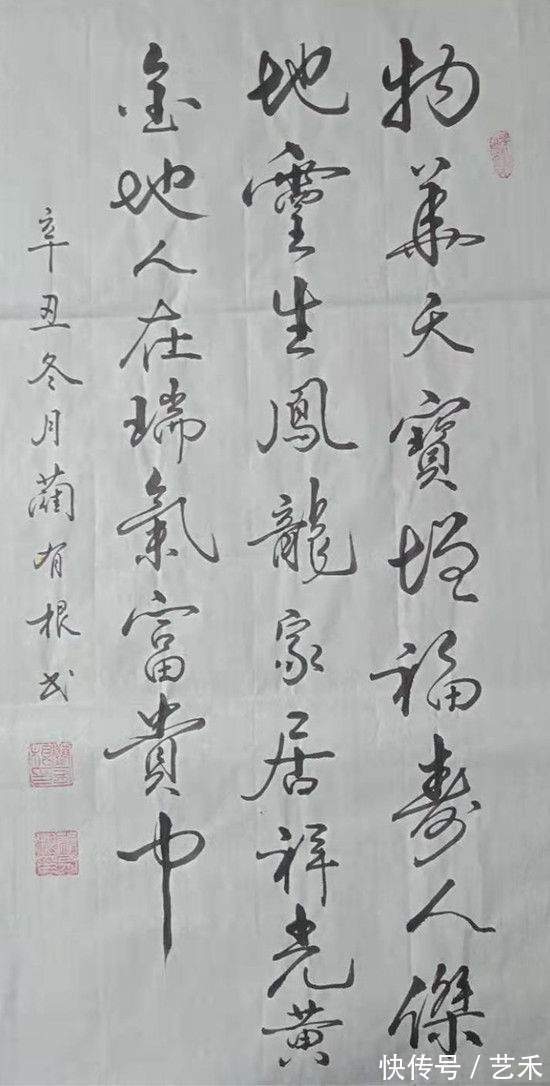 物華天寶增福壽人傑
地靈生鳳龍家居祥光黃
金地人在瑞氣富貴中
辛丑冬月蔺有根书
快传号／艺禾